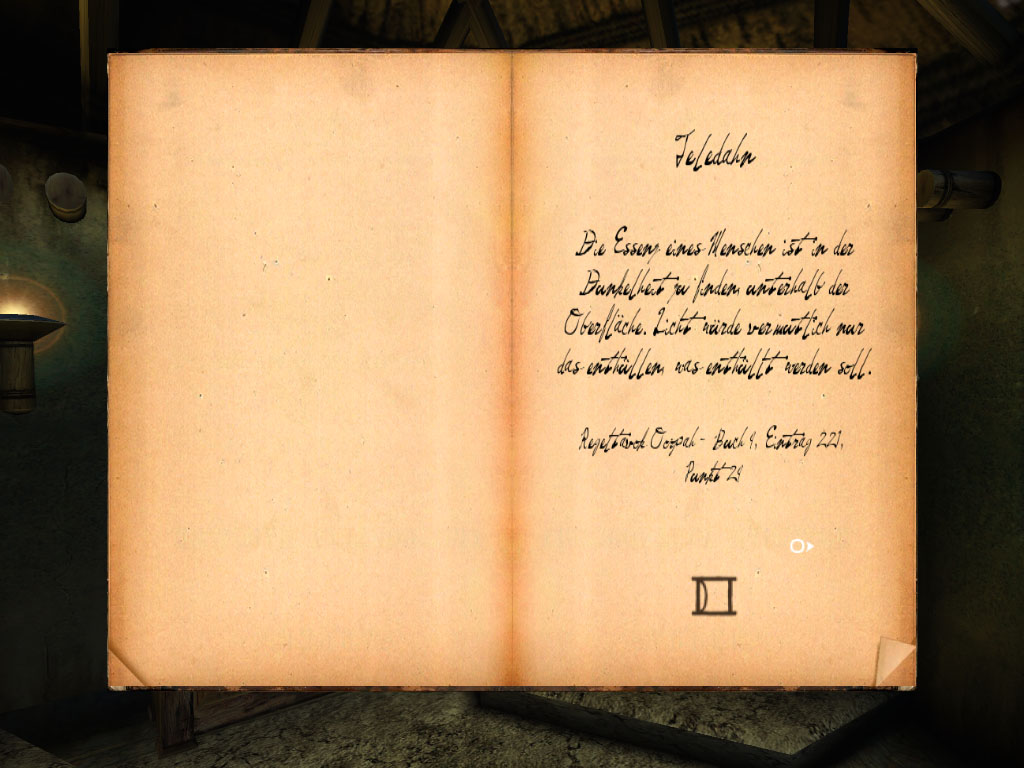 Teledahn
Die Essenz eines Menschen ist in der
Dunkelheit zu finden, unterhalb der
Oberfläche. Licht würde vermutlich nur
das enthüllen, was enthüllt werden soll.
Regeltavok Oorpah - Buch 9, Eintrag 221,
Punkt 29